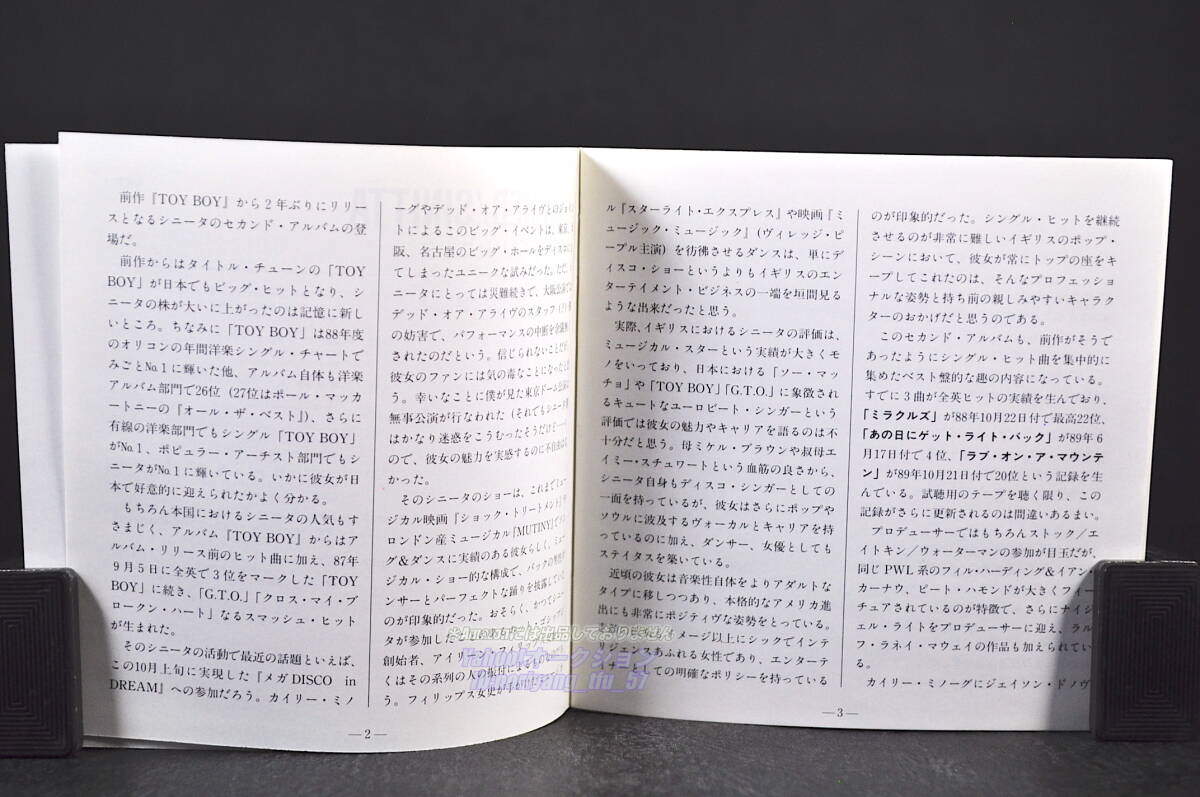 前作『TOY BOY』から2年ぶりにリリー
スとなるシニータのセカンド・アルバムの登
場だ。
前作からはタイトル・チューンの「TOY
BOY」が日本でもビッグ・ヒットとなり、シ
ニータの株が大いに上がったのは記憶に新し
いところ。ちなみに「TOY BOY」は88年度
のオリコンの年間洋楽シングル・チャートで
みごとNo.1に輝いた他、アルバム自体も洋楽
アルバム部門で26位（27位はポール・マッカ
ートニーの『オール・ザ・ベスト』）、さらに
有線の洋楽部門でもシングル「TOY BOY」
がNo.1、ポピュラー・アーチスト部門でもシ
ニータがNo.1に輝いている。いかに彼女が日
本で好意的に迎えられたかよく分かる。
もちろん本国におけるシニータの人気もす
さまじく、アルバム『TOY BOY』からはア
ルバム・リリース前のヒット曲に加え、87年
9月5日に全英で3位をマークした「TOY
BOY」に続き、「G.T.O.」「クロス・マイ・ブ
ロークン・ハート」なるスマッシュ・ヒット
が生まれた。
そのシニータの活動で最近の話題といえば、
この10月上旬に実現した『メガDISCO in
DREAM』への参加だろう。カイリー・ミノ
ーグやデッド・オア・アライヴとのジョイン
トによるこのビッグ・イベントは、東京、
阪、名古屋のビッグ・ホールをディスコに
てしまったユニークな試みだった。ただ
ニータにとっては災難続きで、大阪公演では
デッド・オア・アライヴのスタッフ
の妨害で、パフォーマンスの中断を余儀
されたのだという。信じられないことだが
彼女のファンには気の毒なことになった
う。幸いなことに僕が見た東京ドーム公演は
無事公演が行なわれた（それでもシニータ
はかなり迷惑をこうむったそうだけど
ので、彼女の魅力を実感するのに不自由は
かった。
そのシニータのショーは、これまでミュー
ジカル映画『ショック・トリートメント』や
ロンドン産ミュージカル『MUTINY』で
グ&ダンスに実績のある彼女らしく、ミュー
ジカル・ショー的な構成で、バックの男性
ンサーとパーフェクトな踊りを披露していた
のが印象的だった。おそらく、かつてシニー
タが参加した
創始者、アイリーン・フィ
くはその系列の人の振付によるもの
う。フィリップス女史が
—2—
ル『スターライト・エクスプレス』や映画『ミ
ュージック・ミュージック』（ヴィレッジ・ピ
ープル主演）を彷彿させるダンスは、単にデ
ィスコ・ショーというよりもイギリスのエン
ターテイメント・ビジネスの一端を垣間見る
ような出来だったと思う。
実際、イギリスにおけるシニータの評価は、
ミュージカル・スターという実績が大きくモ
ノをいっており、日本における「ソー・マッ
チョ」や「TOY BOY」「G.T.O.」に象徴され
るキュートなユーロビート・シンガーという
評価では彼女の魅力やキャリアを語るのは不
十分だと思う。母ミケル・ブラウンや叔母エ
イミー・スチュワートという血筋の良さから、
シニータ自身もディスコ・シンガーとしての
一面を持っているが、彼女はさらにポップや
ソウルに波及するヴォーカルとキャリアを持
っているのに加え、ダンサー、女優としても
ステイタスを築いている。
近頃の彼女は音楽性自体をよりアダルトな
タイプに移しつつあり、本格的なアメリカ進
出にも非常にポジティヴな姿勢をとっている。
メージ以上にシックでインテ
ジェンスあふれる女性であり、エンターテ
イナーとしての明確なポリシーを持っている
のが印象的だった。シングル・ヒットを継続
させるのが非常に難しいイギリスのポップ・
シーンにおいて、彼女が常にトップの座をキ
ープしてこれたのは、そんなプロフェッショ
ナルな姿勢と持ち前の親しみやすいキャラク
ターのおかげだと思うのである。
このセカンド・アルバムも、前作がそうで
あったようにシングル・ヒット曲を集中的に
集めたベスト盤的な趣の内容になっている。
すでに3曲が全英ヒットの実績を生んでおり、
「ミラクルズ」が88年10月22日付で最高22位、
「あの日にゲット・ライト・バック」が89年6
月17日付で4位、「ラブ・オン・ア・マウンテ
ン」が89年10月21日付で20位という記録を生
んでいる。試聴用のテープを聴く限り、この
記録がさらに更新されるのは間違いあるまい。
プロデューサーではもちろんストック/エ
イトキン/ウォーターマンの参加が目玉だが、
同じPWL系のフィル・ハーディング&イアン・
カーナウ、ピート・ハモンドが大きくフィー
チュアされているのが特徴で、さらにナイジ
ェル・ライトをプロデューサーに迎え、ラル
フ・ラネイ・マウェイの作品も加えられてい
る。
カイリー・ミノーグにジェイソン・ドノヴ
—3—
には出品しておりません
Yahoo!オークション